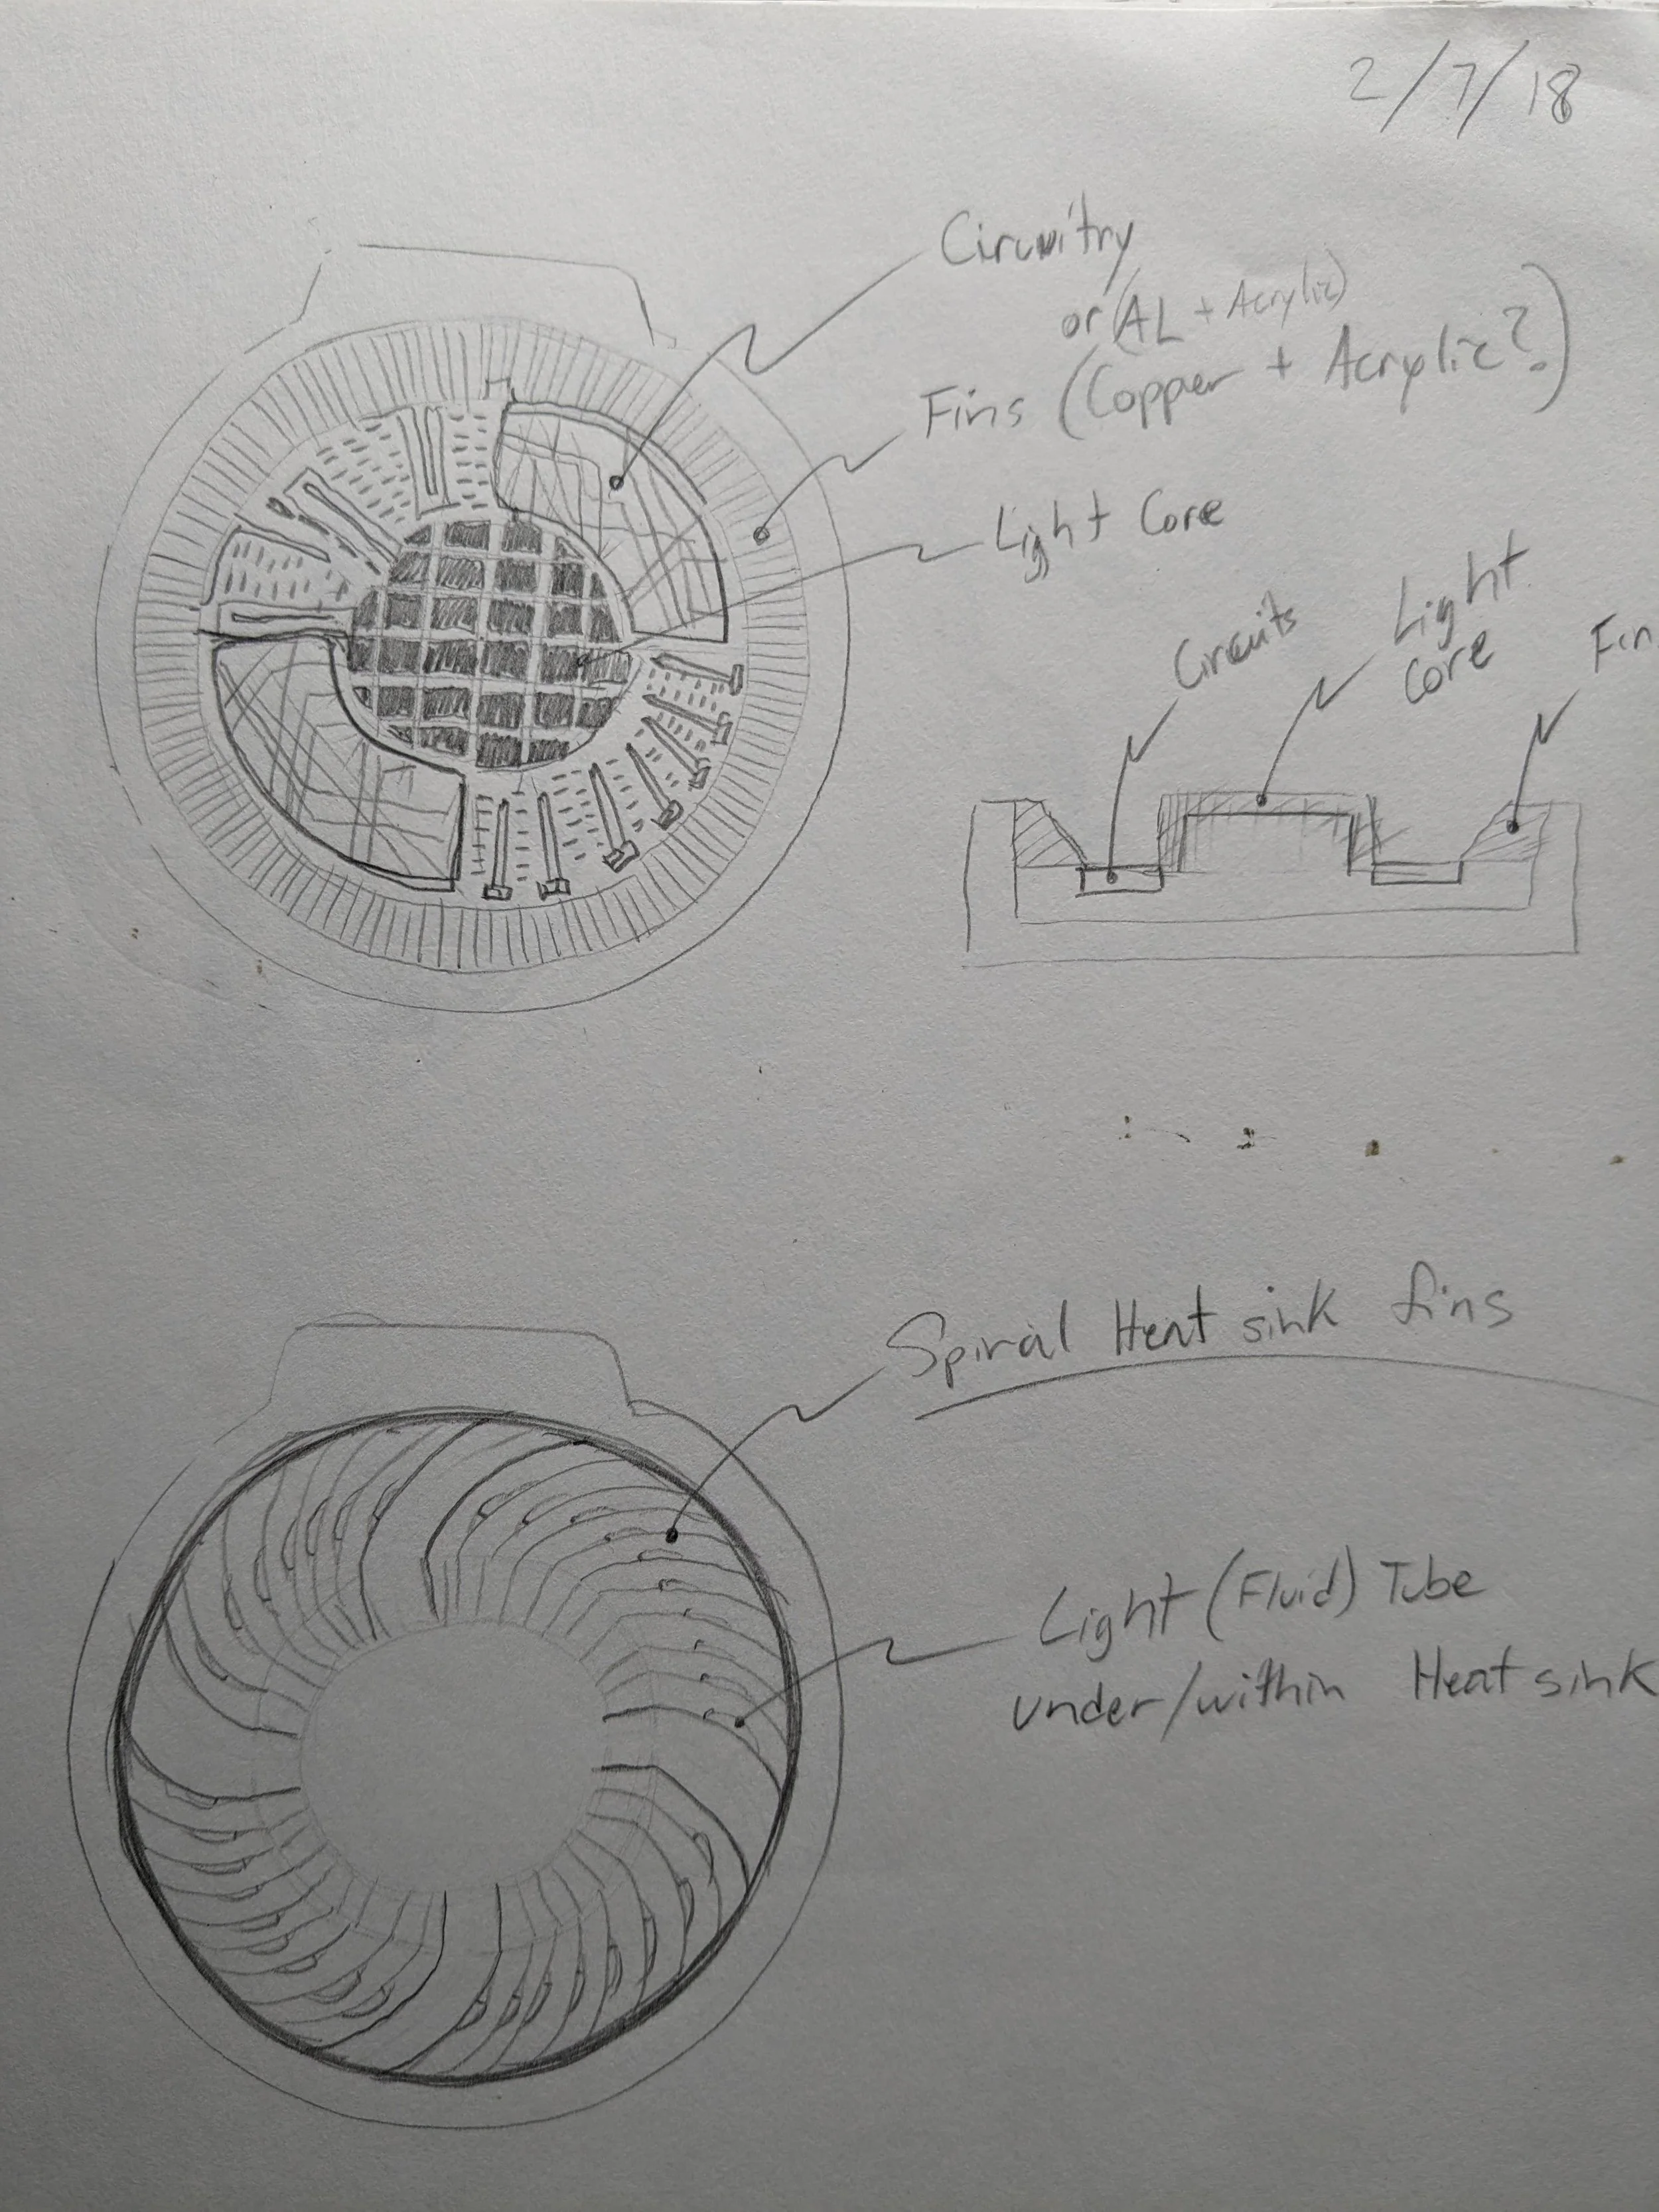 2/7/18
Circuitry
or (AL + Acrylic)
Fins (Copper + Acrylic?)
Light Core
Circuits
Light
Core
Fin
Spiral Heat sink fins
Light (Fluid) Tube
under/within Heat sink